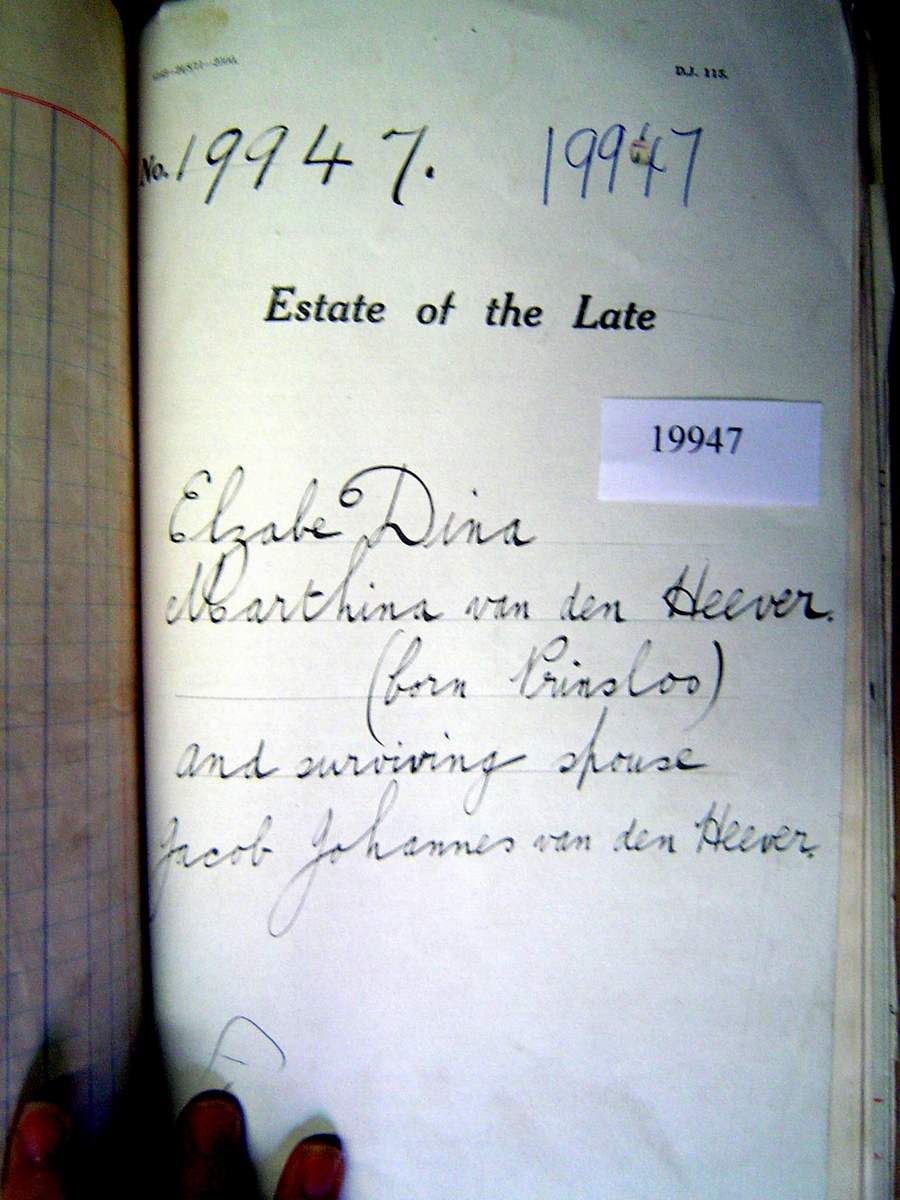 D.J. 115.
No. 19947. 19947
Estate of the Late
19947
Elzabe Dina
Marthina van den Heever.
(born Prinsloo)
and surviving spouse
Jacob Johannes van den Heever.